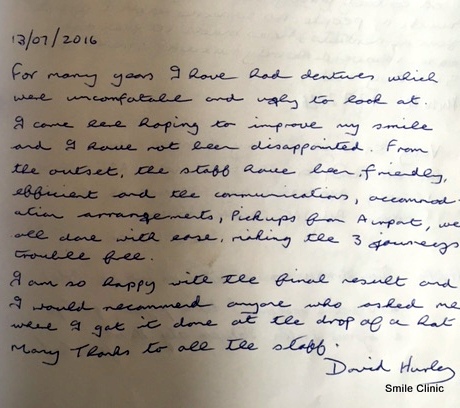 13/07/2016
For many years I have had dentures which
were uncomfatable and ugly to look at.
I came here hoping to improve my smile
and I have not been disappointed. From
the outset, the staff have been friendly,
efficient and the communications, accommod-
ation arrangements, Pickups from Airport, we
all done with ease, making the 3 journeys
trouble free.
I am so happy with the final result and
I would recommend anyone who asked me
where I got it done at the drop of a hat
Many Thanks to all the staff.
David Hurley
Smile Clinic